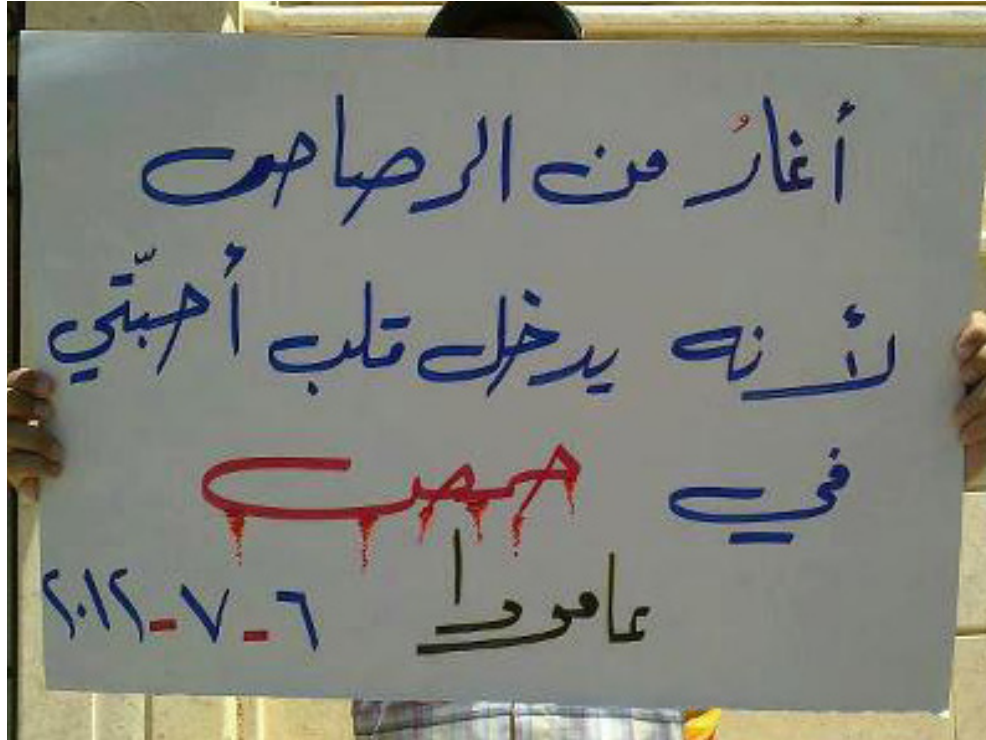 أغارُ من الرصاص
لأنه يدخل قلب أحبّتي
في حمص
عامودا
٦-٧-٢٠١٢